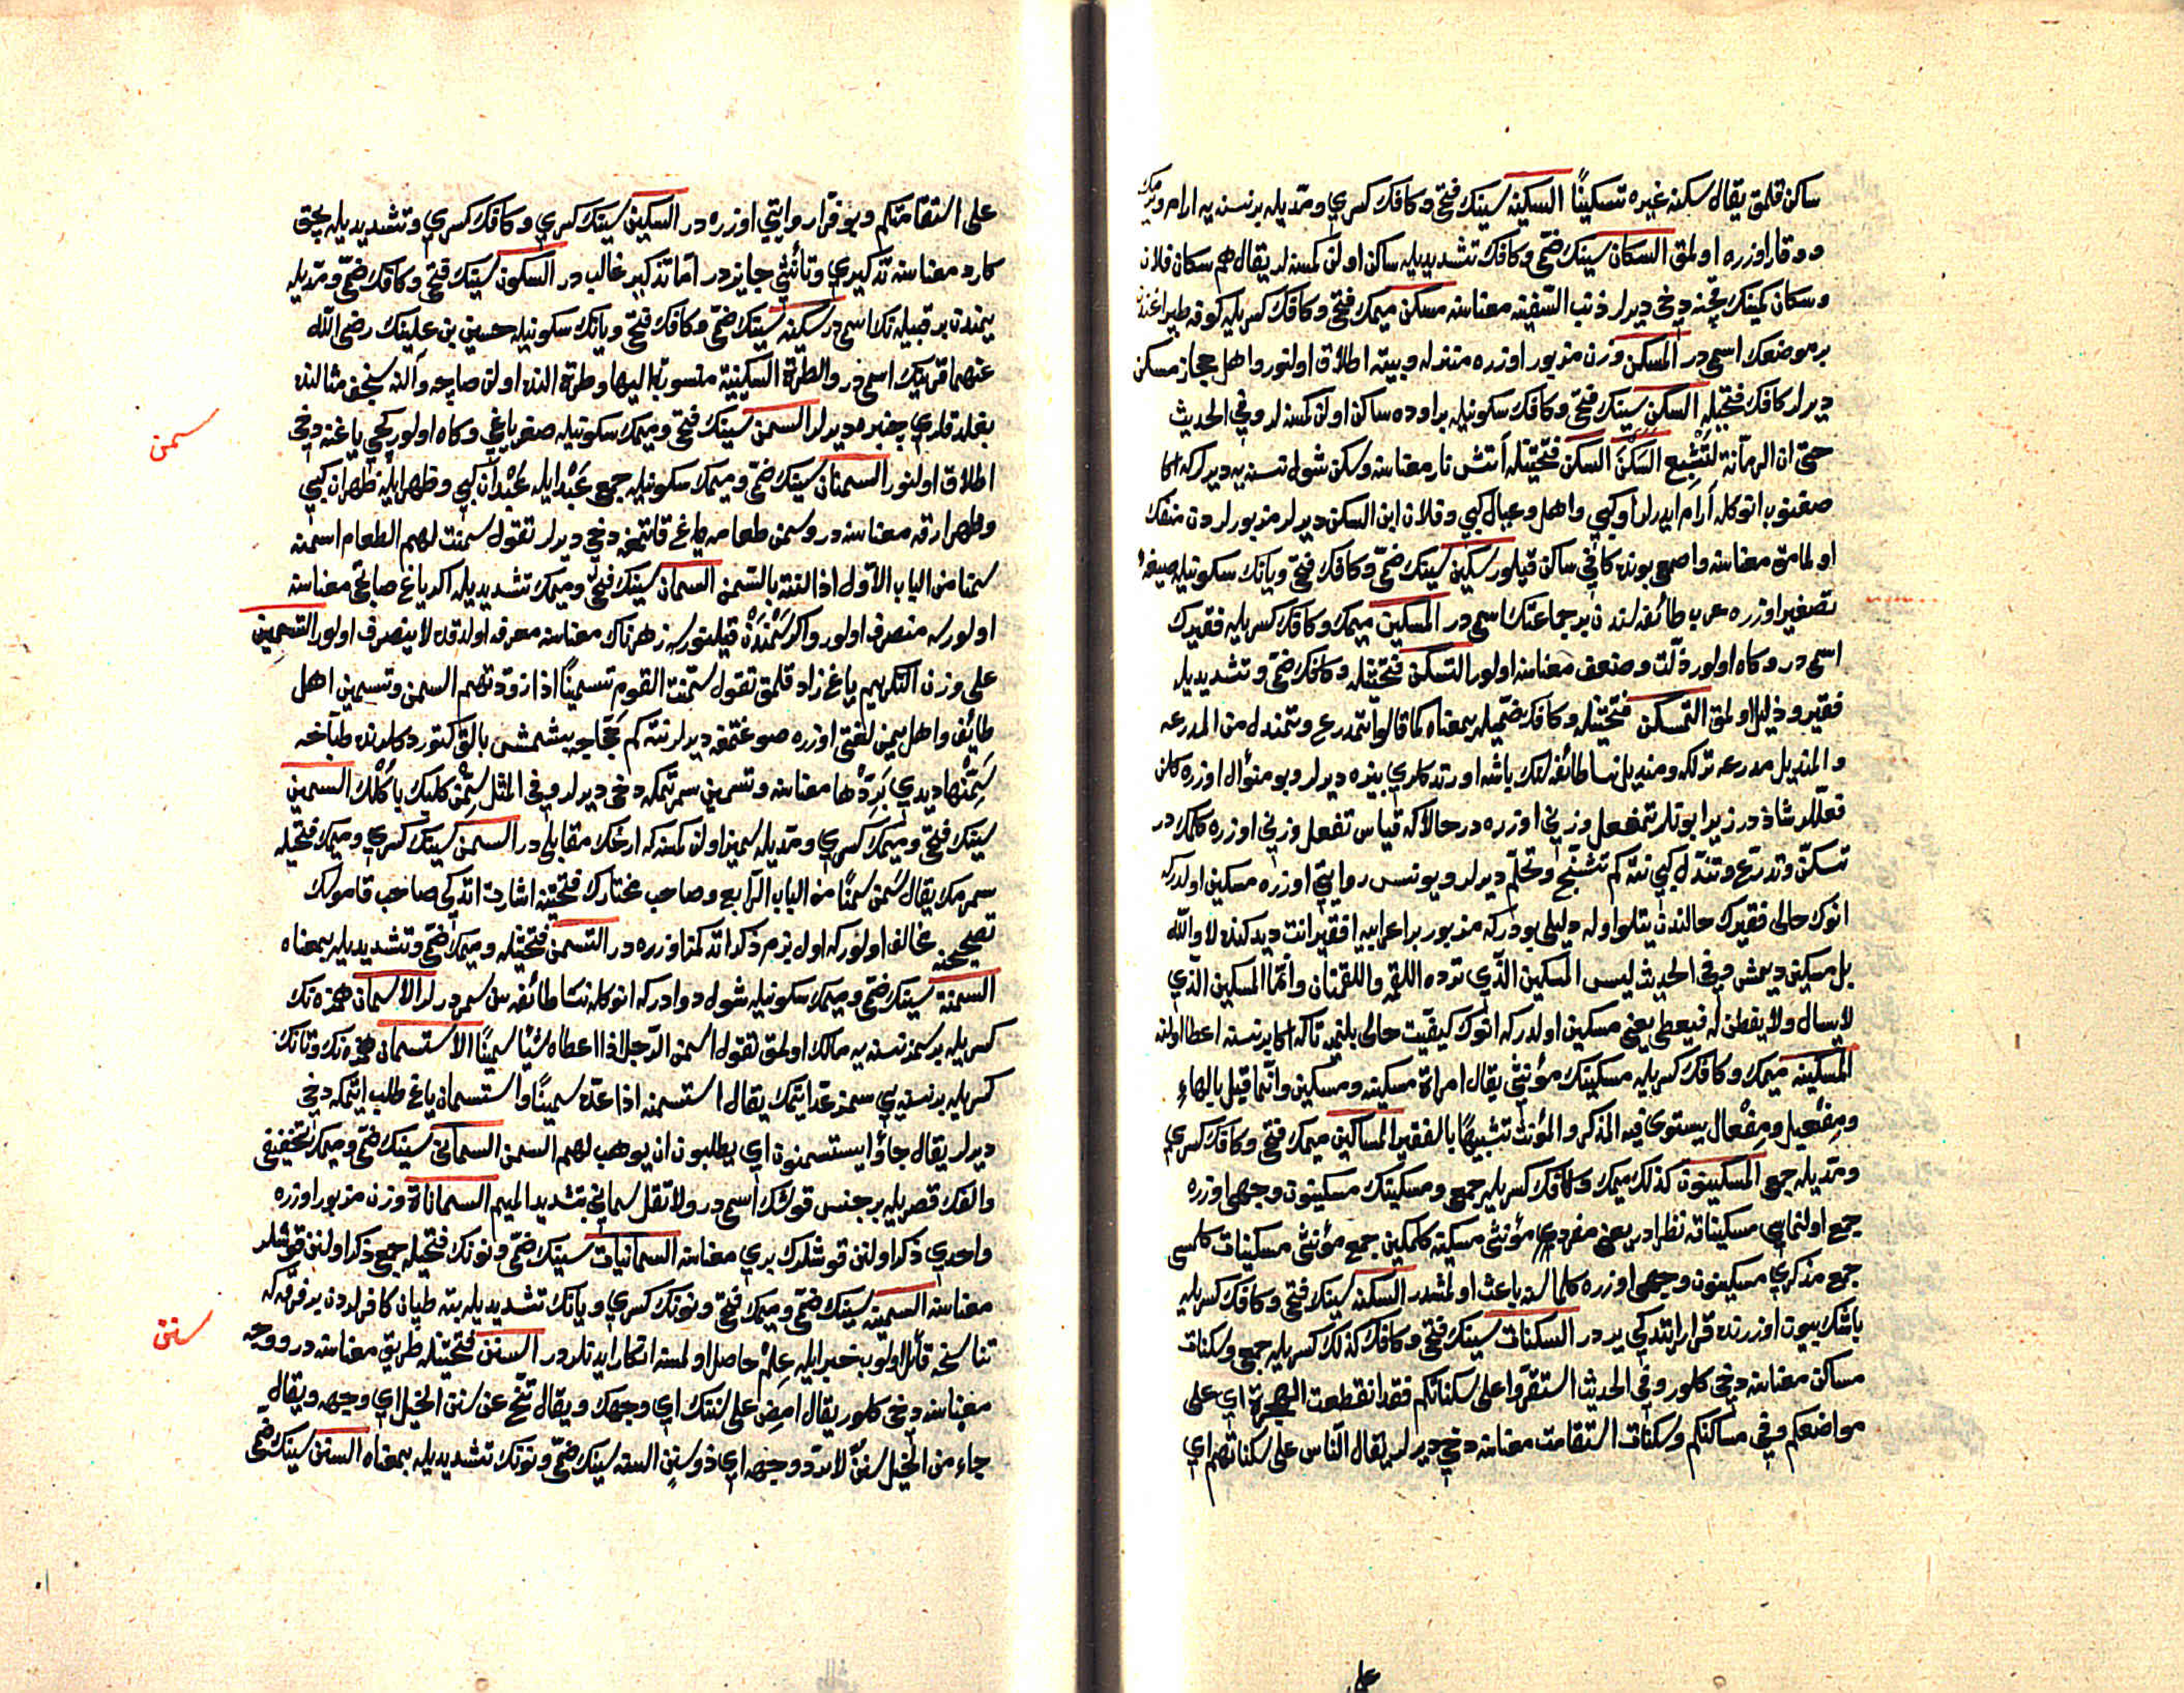 ساكن قلمق يقال سكنه غيره تسكينًا السكينه سينك فتحى وكافك كسرى ومدّيله بر نسنه يه ارام ويرمك
ووقار اوزره اولمق السكان سينك ضمّى وكافك تشديديله ساكن اولن كمسنه لر يقال هم سكان فلان
وسكان كمينك قچنه دخى ديرلر ذنب السّفينه معناسنه مسكن ميمك فتحى وكافك كسريله كوفه طپراغنده
بر موضعك اسميدر المسكن وزن مزبور اوزره منزله وبيته اطلاق اولنور واهل حجاز مسكن
ديرلر كافك فتحيله السكن سينك فتحى وكافك سكونيله بر اوده ساكن اولن كمسنه لر وفي الحديث
حتى ان الرمّانة لتُشْبِع السَكْنَ السكن فتحتينله آتش نار معناسنه وسكن شول نسنه يه ديرلر كه اكا
صغنوب انوكله آرام ايدرلر او كبي واهل وعيال كبي وفلان ابن السكن ديرلر مزبورلردن منفك
اولمامق معناسنه واصمعى بونده كافى ساكن قيلور سكين سينك ضمّى وكافك فتحى ويانك سكونيله صيغهٔ
تصغير اوزره عرب طائفه لرندن بر جماعتك اسميدر المسكين ميمك وكافك كسريله فقيرك
اسميدر وكاه اولور ذلّت وضعف معناسنه اولور التسكن فتحتينله وكافك ضمّى وتشديديله
فقير وذليل اولمق التمسكن فتحتينله وكافك ضمّيله بمعناه كما قالوا تمدرع وتمندل من المدرعه
والمنديل مدرعه كوملكه ومنديل نسا طائفه لرينك باشه اورتدكلرى بيزه ديرلر وبو منوال اوزره كلن
فعللر شاذدر زيرا بونلر تمفعل وزنى اوزره در حالا كه قياس تفعل وزنى اوزره كلمكدر
تسكّن وتدرّع وتندّل كبي نته كم تشجّع وتحلّم ديرلر ويونس روايتى اوزره مسكين اولدر كه
انوك حالى فقيرك حالندن يتلو اوله دليلى بودر كه مزبور بر اعرابيه افقير انت ديدكنده لا والله
بل مسكين ديمش وفي الحديث ليس المسكين الّذي تردّه اللقمه واللقمتان وانّما المسكين الّذي
لا يسال ولا يفطن له فيعطى يعنى مسكين اولدر كه انوك كيفيّت حالى بلنميه تا كه اكا بر نسنه اعطا اولنه
المسكينه ميمك وكافك كسريله مسكينك مؤنثى يقال امراة مسكينه ومسكين وانّما قيل بالهاءِ
ومِفْعيل ومِفْعال يستوى فيه المذكر والمؤنث تشبيهًا بالفقير المساكين ميمك فتحى وكافك كسرى
ومدّيله جمعى المسكينون كذلك ميمك وكافك كسريله جمعى ومسكينك مسكينون وجهى اوزره
جمع اولنماسى مسكيناته نظرادر يعنى مفردى مؤنثى مسكينه كلمكين جمع مؤنثى مسكينات كلمسى
جمع مذكرى مسكينون وجهى اوزره كلماسنه باعث اولمشدر السكنه سينك فتحى وكافك كسريله
باشك بيون اوزرنده قرار ايتدكى يردر السكنات سينك فتحى وكافك كذلك كسريله جمعى وسكنات
مساكن معناسنه دخى كلور وفي الحديث استقرّوا على سكناتكم فقد انقطعت الهجرة اي على
مواضعكم وفي مساكنكم وسكنات استقامت معناسنه دخى ديرلر يقال النّاس على سكناتهم اي
على
على استقامتكم وبو فرّا روايتى اوزره در السكين سينك كسرى وكافك كسرى وتشديديله بچق
كارد معناسنه تذكيرى وتأنيثى جايزدر امّا تذكير غالبدر السكون سينك فتحى وكافك ضمّى ومدّيله
يمندن بر قبيله نك اسميدر سكينه سينك ضمّى وكافك فتحى ويانك سكونيله حسين بن علينك رضى الله
عنهما قزينك اسميدر والطرة السكينية منسوبة اليها وطرة الندن اولن صاچه والنه سنجق مثالنده
بغلدقلرى چنبره ديرلر السمن سينك فتحى وميمك سكونيله صغر ياغى وكاه اولور كچى ياغنه دخى
سمن
اطلاق اولنور السمنان سينك ضمّى وميمك سكونيله جمعى عَبْد ايله عُبْدان كبي وظهر ايله ظهران كبي
وظهر ارقه معناسنه در وسمن طعامه ياغ قاتمغه دخى ديرلر تقول سمنت لهم الطعام اسمنه
سمنا من الباب الاوّل اذا لتتّه بالسّمن السمان سينك فتحى وميمك تشديديله اكر ياغ صاتجى معناسنه
اولورسه منصرف اولور واكر سَمّدَن قيلنورسه زهرناك معناسنه معرفه اولدقده لا ينصرف اولور التسمين
على وزن التكريم ياغ زاد قلمق تقول سمّنت القوم تسمينًا اذا زوّدتهم السمن وتسمين اهل
طائف واهل يمن لغتى اوزره صوغتمغه ديرلر نته كم حجّاجه پشمش بالق كتوردكلرنده طبّاخه
سَمِّنْها ديدى بَرِّدْها معناسنه وتسمين سمرتمكه دخى ديرلر وفي المثل سَمِّن كلبك يأكلْك السمين
سينك فتحى وميمك كسرى ومدّيله سمز اولن كمسنه كه ارغك مقابليدر السمن سينك كسرى وميمك فتحيله
سمرمك يقال سَمِن سِمنًا من الباب الرّابع وصاحب مختارك فتحتينه اشارت اتدكى صاحب قاموسك
تصحيحنه مخالف اولور كه اول بزم ذكر اتدكمز اوزره در التسمن فتحتينله وميمك ضمّى وتشديديله بمعناه
السمنة سينك ضمّى وميمك سكونيله شول دوادر كه انوكله نسا طائفه سن سمردرلر الاسمان همزه نك
كسريله بر سمز نسنه يه مالك اولمق تقول اسمن الرّجل اذا اعطاه شيئًا سمينًا الاستسمان همزه نك وتانك
كسريله بر نسنه يى سمز عدّ ايتمك يقال استسمنه اذا عدّه سمينًا واستسمان ياغ طلب ايتمكه دخى
ديرلر يقال جاؤا يستسمنون اي يطلبون ان يوهب لهم السمن السمانى سينك ضمّى وميمك تخفيفى
والفك قصريله بر جنس قوشك اسميدر ولا تقل سمانى بتشديد الميم السماناة وزن مزبور اوزره
واحدى ذكر اولنن قوشلرك برى معناسنه السمانيات سينك ضمّى ونونك فتحيله جمعى ذكر اولنن قوشلر
معناسنه السمنيه سينك ضمّى وميمك فتحى ونونك كسرى ويانك تشديديله بته طپان كافرلردن بر فرقه كه
تناسخه قائل اولوب خبر ايله عِلْم حاصل اولمسنه انكار ايدنلردر السنن فتحتينله طريق معناسنه در ووجه
سنن
معناسنه دخى كلور يقال امضِ على سننك اي وجهك ويقال تنحّ عن سنن الخيل اي وجهه ويقال
جاء من الخيل سننٌ لا يردّ وجهه اي ذو سننٍ السنه سينك ضمّى ونونك تشديديله بمعناه السنن سينك ضمّى